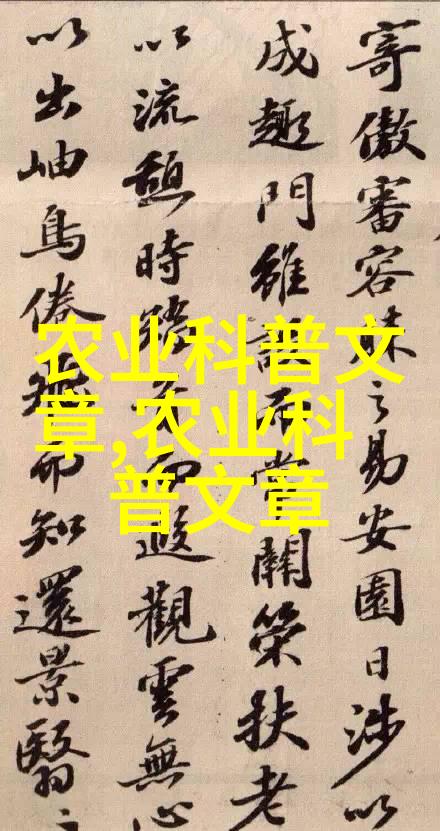 寄傲審容膝之易安園日涉以
成趣門雖設而常關策扶老
以流憩時矯首而遐觀雲無心
以出岫鳥倦飛而知還景翳
农业科普文
章,农业科
普文章